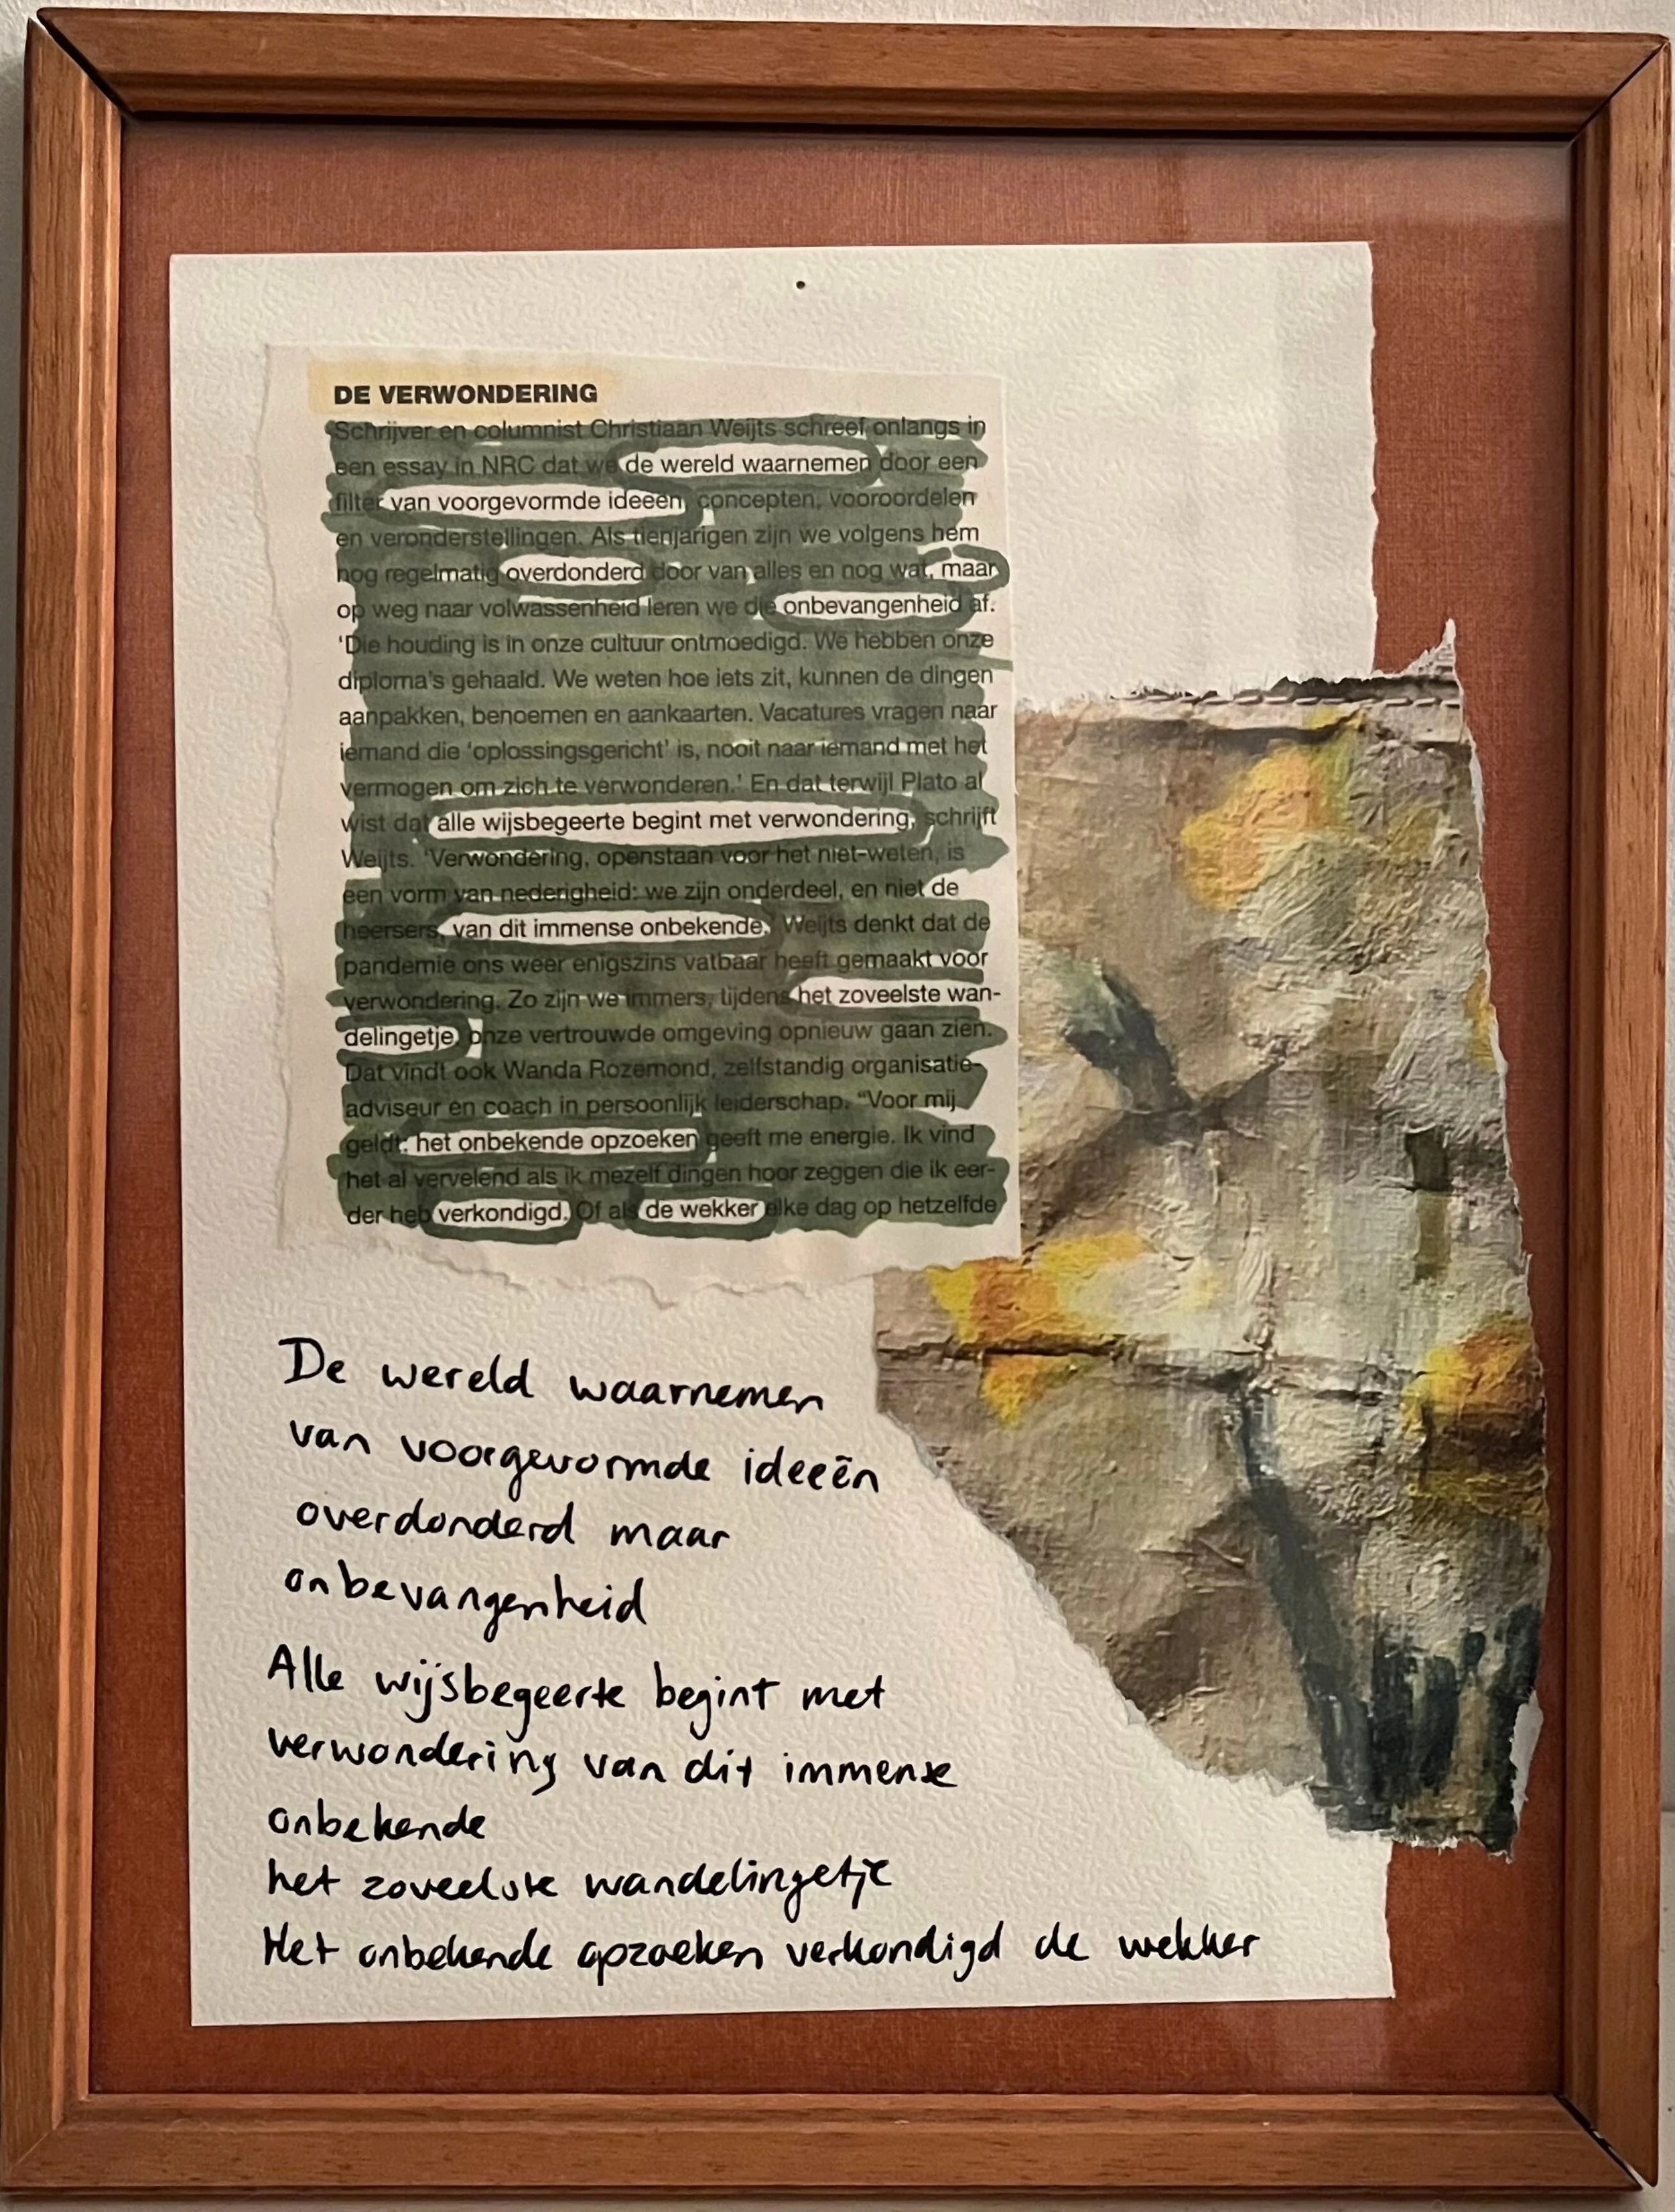 DE VERWONDERING
Schrijver en columnist Christiaan Weijts schreef onlangs in
een essay in NRC dat we de wereld waarnemen door een
filter van voorgevormde ideeën, concepten, vooroordelen
en veronderstellingen. Als tienjarigen zijn we volgens hem
nog regelmatig overdonderd door van alles en nog wat, maar
op weg naar volwassenheid leren we die onbevangenheid af.
'Die houding is in onze cultuur ontmoedigd. We hebben onze
diploma's gehaald. We weten hoe iets zit, kunnen de dingen
aanpakken, benoemen en aankaarten. Vacatures vragen naar
iemand die 'oplossingsgericht' is, nooit naar iemand met het
vermogen om zich te verwonderen.' En dat terwijl Plato al
wist dat alle wijsbegeerte begint met verwondering, schrijft
Weijts. 'Verwondering, openstaan voor het niet-weten, is
een vorm van nederigheid: we zijn onderdeel, en niet de
heersers, van dit immense onbekende.' Weijts denkt dat de
pandemie ons weer enigszins vatbaar heeft gemaakt voor
verwondering. Zo zijn we immers, tijdens het zoveelste wan-
delingetje, onze vertrouwde omgeving opnieuw gaan zien.
Dat vindt ook Wanda Rozemond, zelfstandig organisatie-
adviseur en coach in persoonlijk leiderschap. "Voor mij
geldt: het onbekende opzoeken geeft me energie. Ik vind
het al vervelend als ik mezelf dingen hoor zeggen die ik eer-
der heb verkondigd. Of als de wekker elke dag op hetzelfde
De wereld waarnemen
van voorgevormde ideeën
overdonderd maar
onbevangenheid
Alle wijsbegeerte begint met
verwondering van dit immense
onbekende
het zoveelste wandelingetje
Het onbekende opzoeken verkondigd de wekker